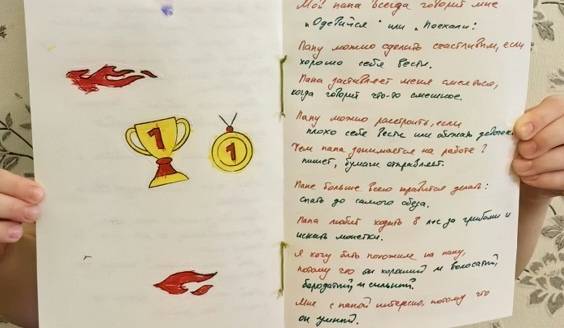 1
1
Мой папа всегда говорит мне
„Одевайся" или „Поехали!
Папу можно сделать счастливым, если
хорошо себя вести.
Папа заставляет меня смеяться,
когда говорит что-то смешное.
Папу можно расстроить, если
плохо себя вести или обижать девочек
Чем папа занимается на работе?
пишет, бумаги отправляет.
Папе больше всего нравится делать:
спать до самого обеда.
Папа любит ходить в лес за грибами и
искать монетки.
Я хочу быть похожим на папу,
потому что он хороший и волосатый,
бородатый и сильный.
Мне с папой интересно, потому что
он умный.